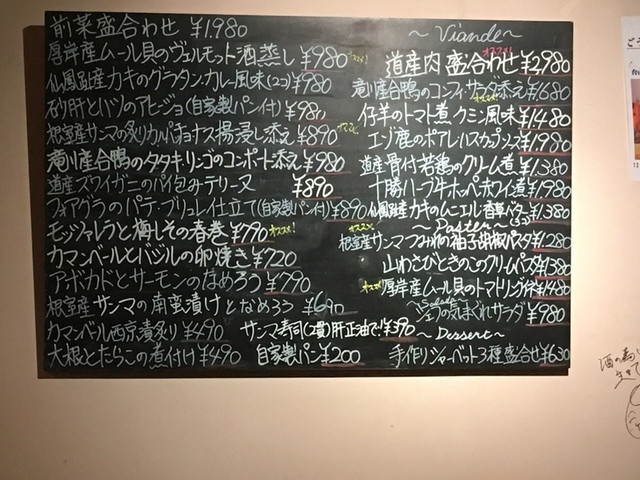 前菜盛合わせ ¥1,980
厚岸産ムール貝のヴェルモット酒蒸し ¥980
仙鳳趾産カキのグラタンカレー風味(2コ) ¥980
砂肝とハツのアヒージョ(自家製パン付) ¥980
根室産サンマの炙りカルパッチョ ナス揚浸し添え ¥890
滝川産合鴨のタタキ リンゴのコンポート添え ¥980
道産ズワイガニのパイ包みテリーヌ ¥890
フォアグラのパテ ブリュレ仕立て(自家製パン付) ¥890
モッツァレラと梅しその春巻 ¥790 オススメ!
カマンベールとバジルの卵焼き ¥720
アボカドとサーモンのなめろう ¥790
根室産サンマの南蛮漬けとなめろう ¥690
カマンベール西京漬炙り ¥490
サンマ寿司(2貫)肝正油で! ¥390
大根とたらこの煮付け ¥490
自家製パン ¥200
〜Viande〜
オススメ!
道産肉盛合わせ ¥2,980
滝川産合鴨のコンフィ サラダ添え ¥1,680
仔羊のトマト煮 クミン風味 ¥1,480
エゾ鹿のポアレ ハスカップソース ¥1,980
道産骨付若鶏のクリーム煮 ¥1,380
十勝ハーブ牛ホッペ赤ワイン煮 ¥1,980
仙鳳趾産カキのムニエル 香草バター(5コ) ¥1,380
〜Paster〜
オススメ
根室産サンマつみれの柚子胡椒パスタ ¥1,280
山わさびときのこのクリームパスタ ¥1,380
オススメ! 厚岸産ムール貝のトマトリングイネ ¥1,480
〜Salade〜
シェフの気まぐれサラダ ¥980
〜Dessert〜
手作りシャーベット3種盛合せ ¥630
酒の為に